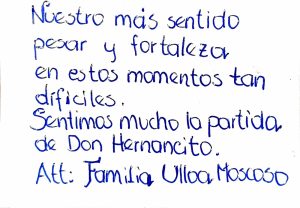 Nuestro más sentido
pesar y fortaleza
en estos momentos tan
dificiles.
Sentimos mucho la partida
de Don Hernancito.
Att: Familia Ulloa Moscoso